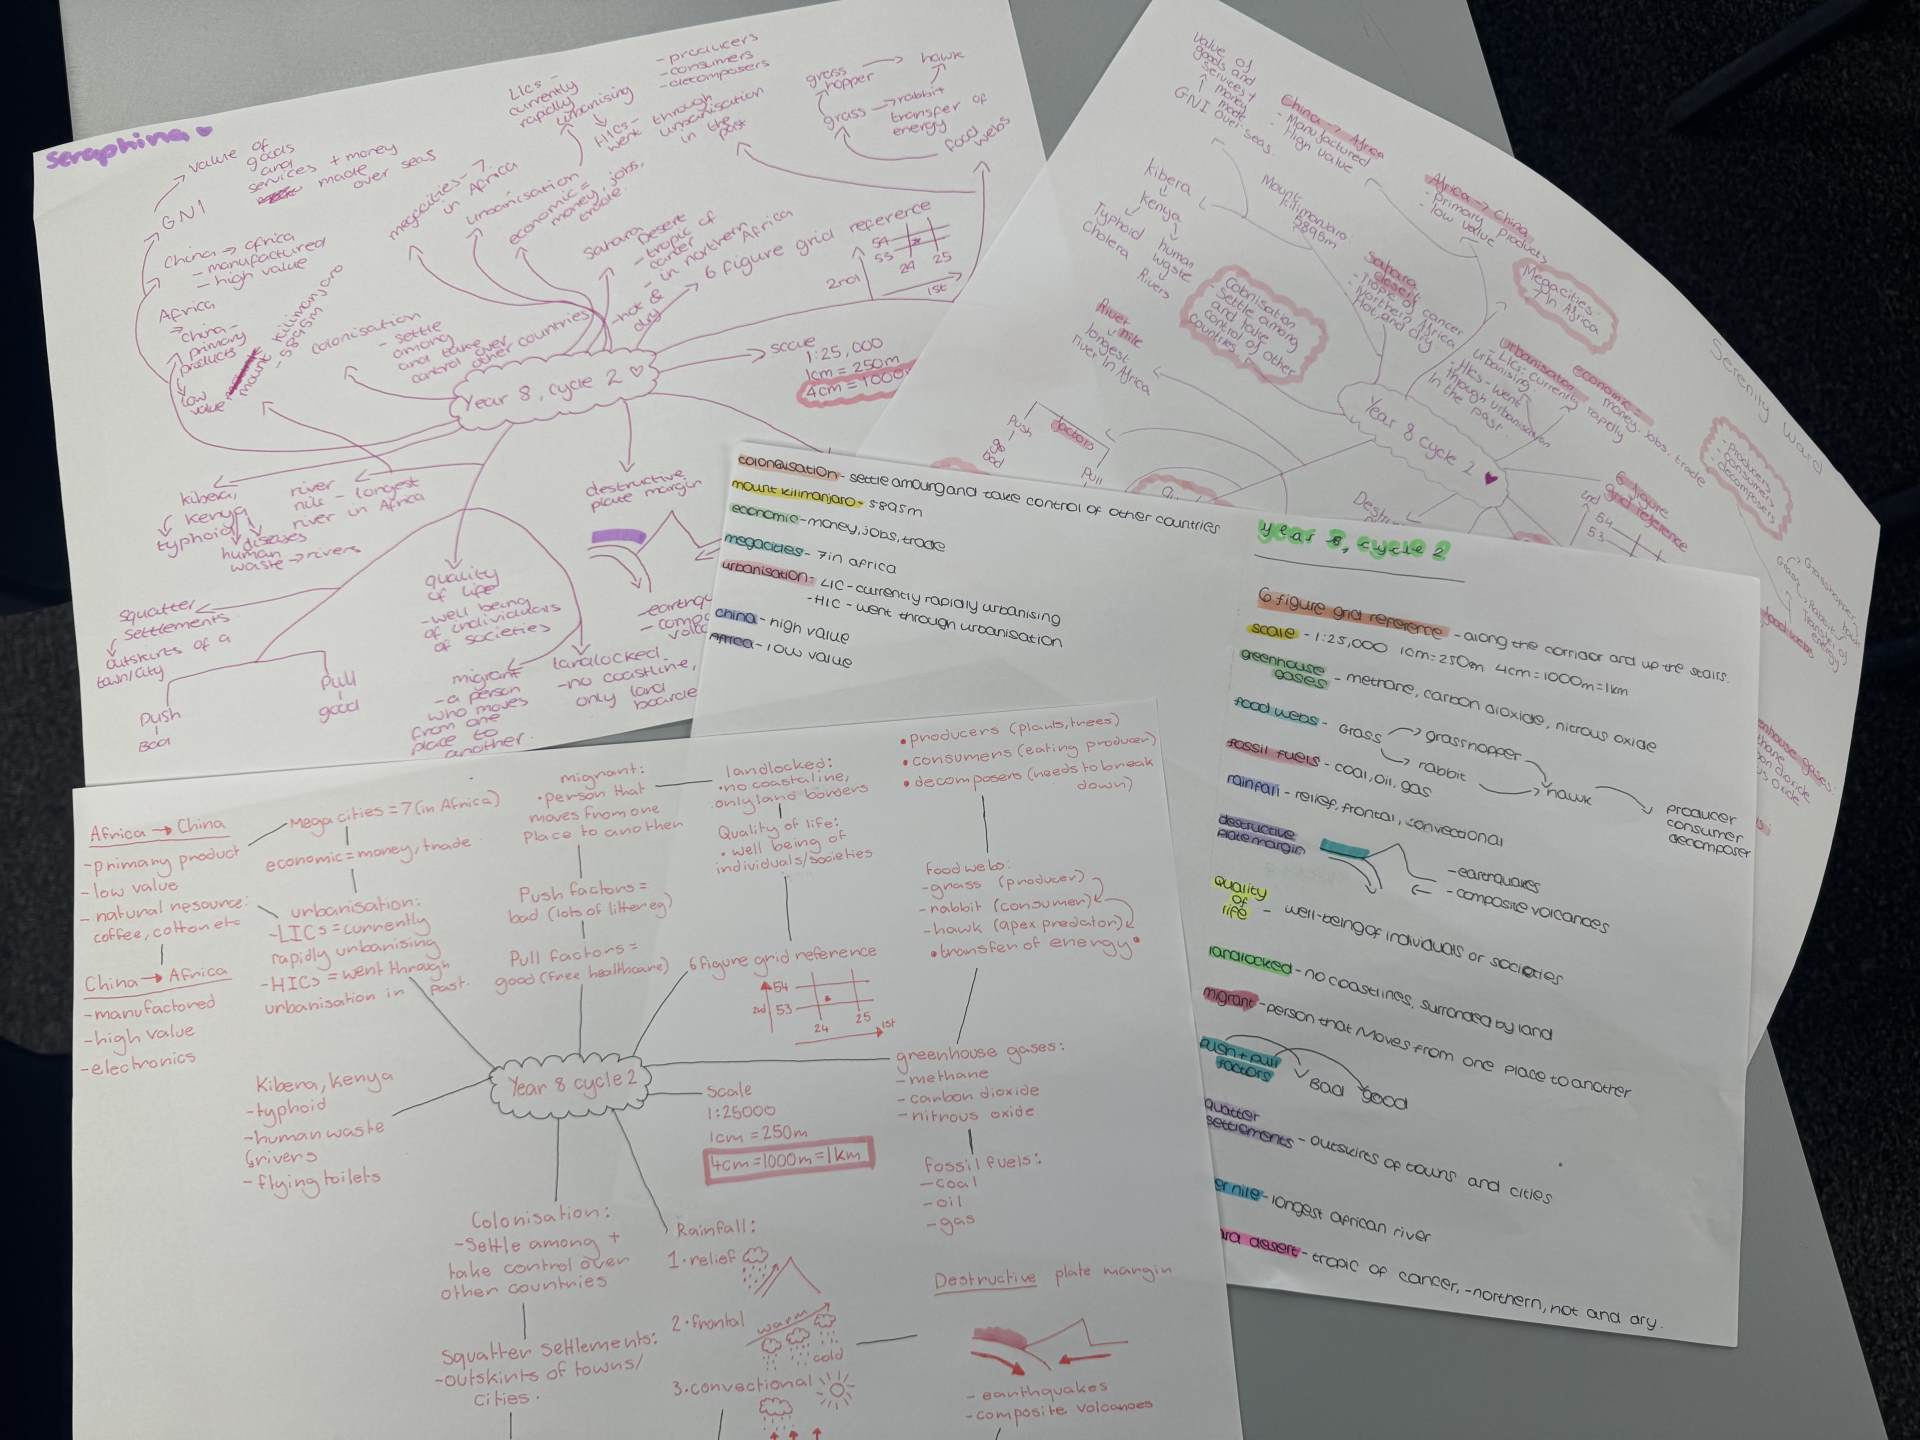 Seraphina
GNI
value of
goods
and
services + money
made
over seas
China → africa
- manufactured
- high value
Africa
→ China -
primary
products
low
value
mount kilimanjaro
- 5895m
colonisation
- settle
among
and take
control over
other countries
megacities - 7
in Africa
urbanisation
LICs -
currently
rapidly
urbanising
HICs -
went through
urbanisation
in the
past
economic =
money, jobs,
trade
- producers
- consumers
- decomposers
grass
hopper
hawk
grass → rabbit
transfer of
energy
food
webs
Sahara
Desert
- tropic of
cancer
- in northern Africa
- hot &
dry
6 figure grid reference
54
53
24
25
2nd
1st
Year 8, cycle 2
scale
1:25,000
1cm = 250m
4cm = 1000m
kibera,
Kenya
typhoid
diseases
human
waste → rivers
river
nile - longest
river in Africa
destructive
plate margin
squatter
settlements
outskirts of a
town/city
Push
Bad
Pull
good
quality
of life
- well being
of individuals
of societies
migrant
- a person
who moves
from one
place to
another.
landlocked
- no coastline,
only land
Value of
goods and
services +
money
GNI over seas
China → Africa
- Manufactured
- High value
Africa → China
- Primary products
- low value
kibera
Kenya
Typhoid
Cholera
human
waste
Rivers
Mount
Kilimanjaro
5895m
Colonisation
- Settle among
and take
control of other
countries
Sahara
desert
- Tropic of cancer
- Northern Africa
- Hot and dry
Megacities
7 in Africa
Serenity Ward
River nile
longest
river in Africa
urbanisation
- LICs - currently rapidly
urbanising
- HICs - went
though urbanisation
in the past
economic =
money, jobs, trade
Push
bad
factors
Pull
Year 8 cycle 2
- producers
- consumers
- decomposers
6 figure
grid reference
54
53
colonisation - settle amoung and take control of other countries
mount kilimanjaro - 5895m
economic - money, jobs, trade
megacities - 7 in africa
urbanisation = LIC - currently rapidly urbanising
- HIC - went through urbanisation
china - high value
Africa - low value
year 8, cycle 2
6 figure grid reference - along the corridor and up the stairs.
scale - 1:25,000 1cm = 250m 4cm = 1000m = 1km
greenhouse
gases - methane, carbon dioxide, nitrous oxide
food webs - Grass → grasshopper
→ rabbit
→ hawk
producer
consumer
decomposer
fossil fuels - coal, oil, gas
rainfall - relief, frontal, convectional
destructive
plate margin
- earthquakes
- composite volcanoes
Quality
of
life - well-being of individuals or societies
landlocked - no coastlines, surronded by land
migrant - person that Moves from one place to another
push + pull
factors
Bad
good
quatter
settlements - outskirts of towns and cities
er nile - longest african river
ara desert - tropic of cancer, - northern, hot and dry.
Africa → China
- primary product
- low value
- natural resource:
coffee, cotton etc
China → Africa
- manufactored
- high value
- electronics
Megacities = 7 (in Africa)
economic = money, trade
urbanisation:
- LICs = currently
rapidly urbanising
- HICs = went through
urbanisation in past.
migrant:
• person that
moves from one
place to another
Push factors =
bad (lots of litter eg)
Pull factors =
good (free healthcare)
landlocked:
• no coastaline,
only land borders
Quality of life:
• well being of
individuals/societies
6 figure grid reference
54
53
24
25
2nd
1st
• producers (plants, trees)
• consumers (eating producer)
• decomposers (needs to break
down)
Food webs:
- grass (producer)
- rabbit (consumer)
- hawk (apex predator)
• transfer of energy •
Year 8 cycle 2
Kibera, kenya
- typhoid
- human waste
rivers
- flying toilets
Scale
1:25000
1cm = 250m
4cm = 1000m = 1km
greenhouse gases:
- methane
- carbon dioxide
- nitrous oxide
fossil fuels:
- coal
- oil
- gas
Colonisation:
- Settle among +
take control over
other countries
Squatter settlements:
- outskirts of towns/
cities.
Rainfall:
1. relief
2. frontal
warm
cold
3. convectional
Destructive plate margin
- earthquakes
- composite volcanoes